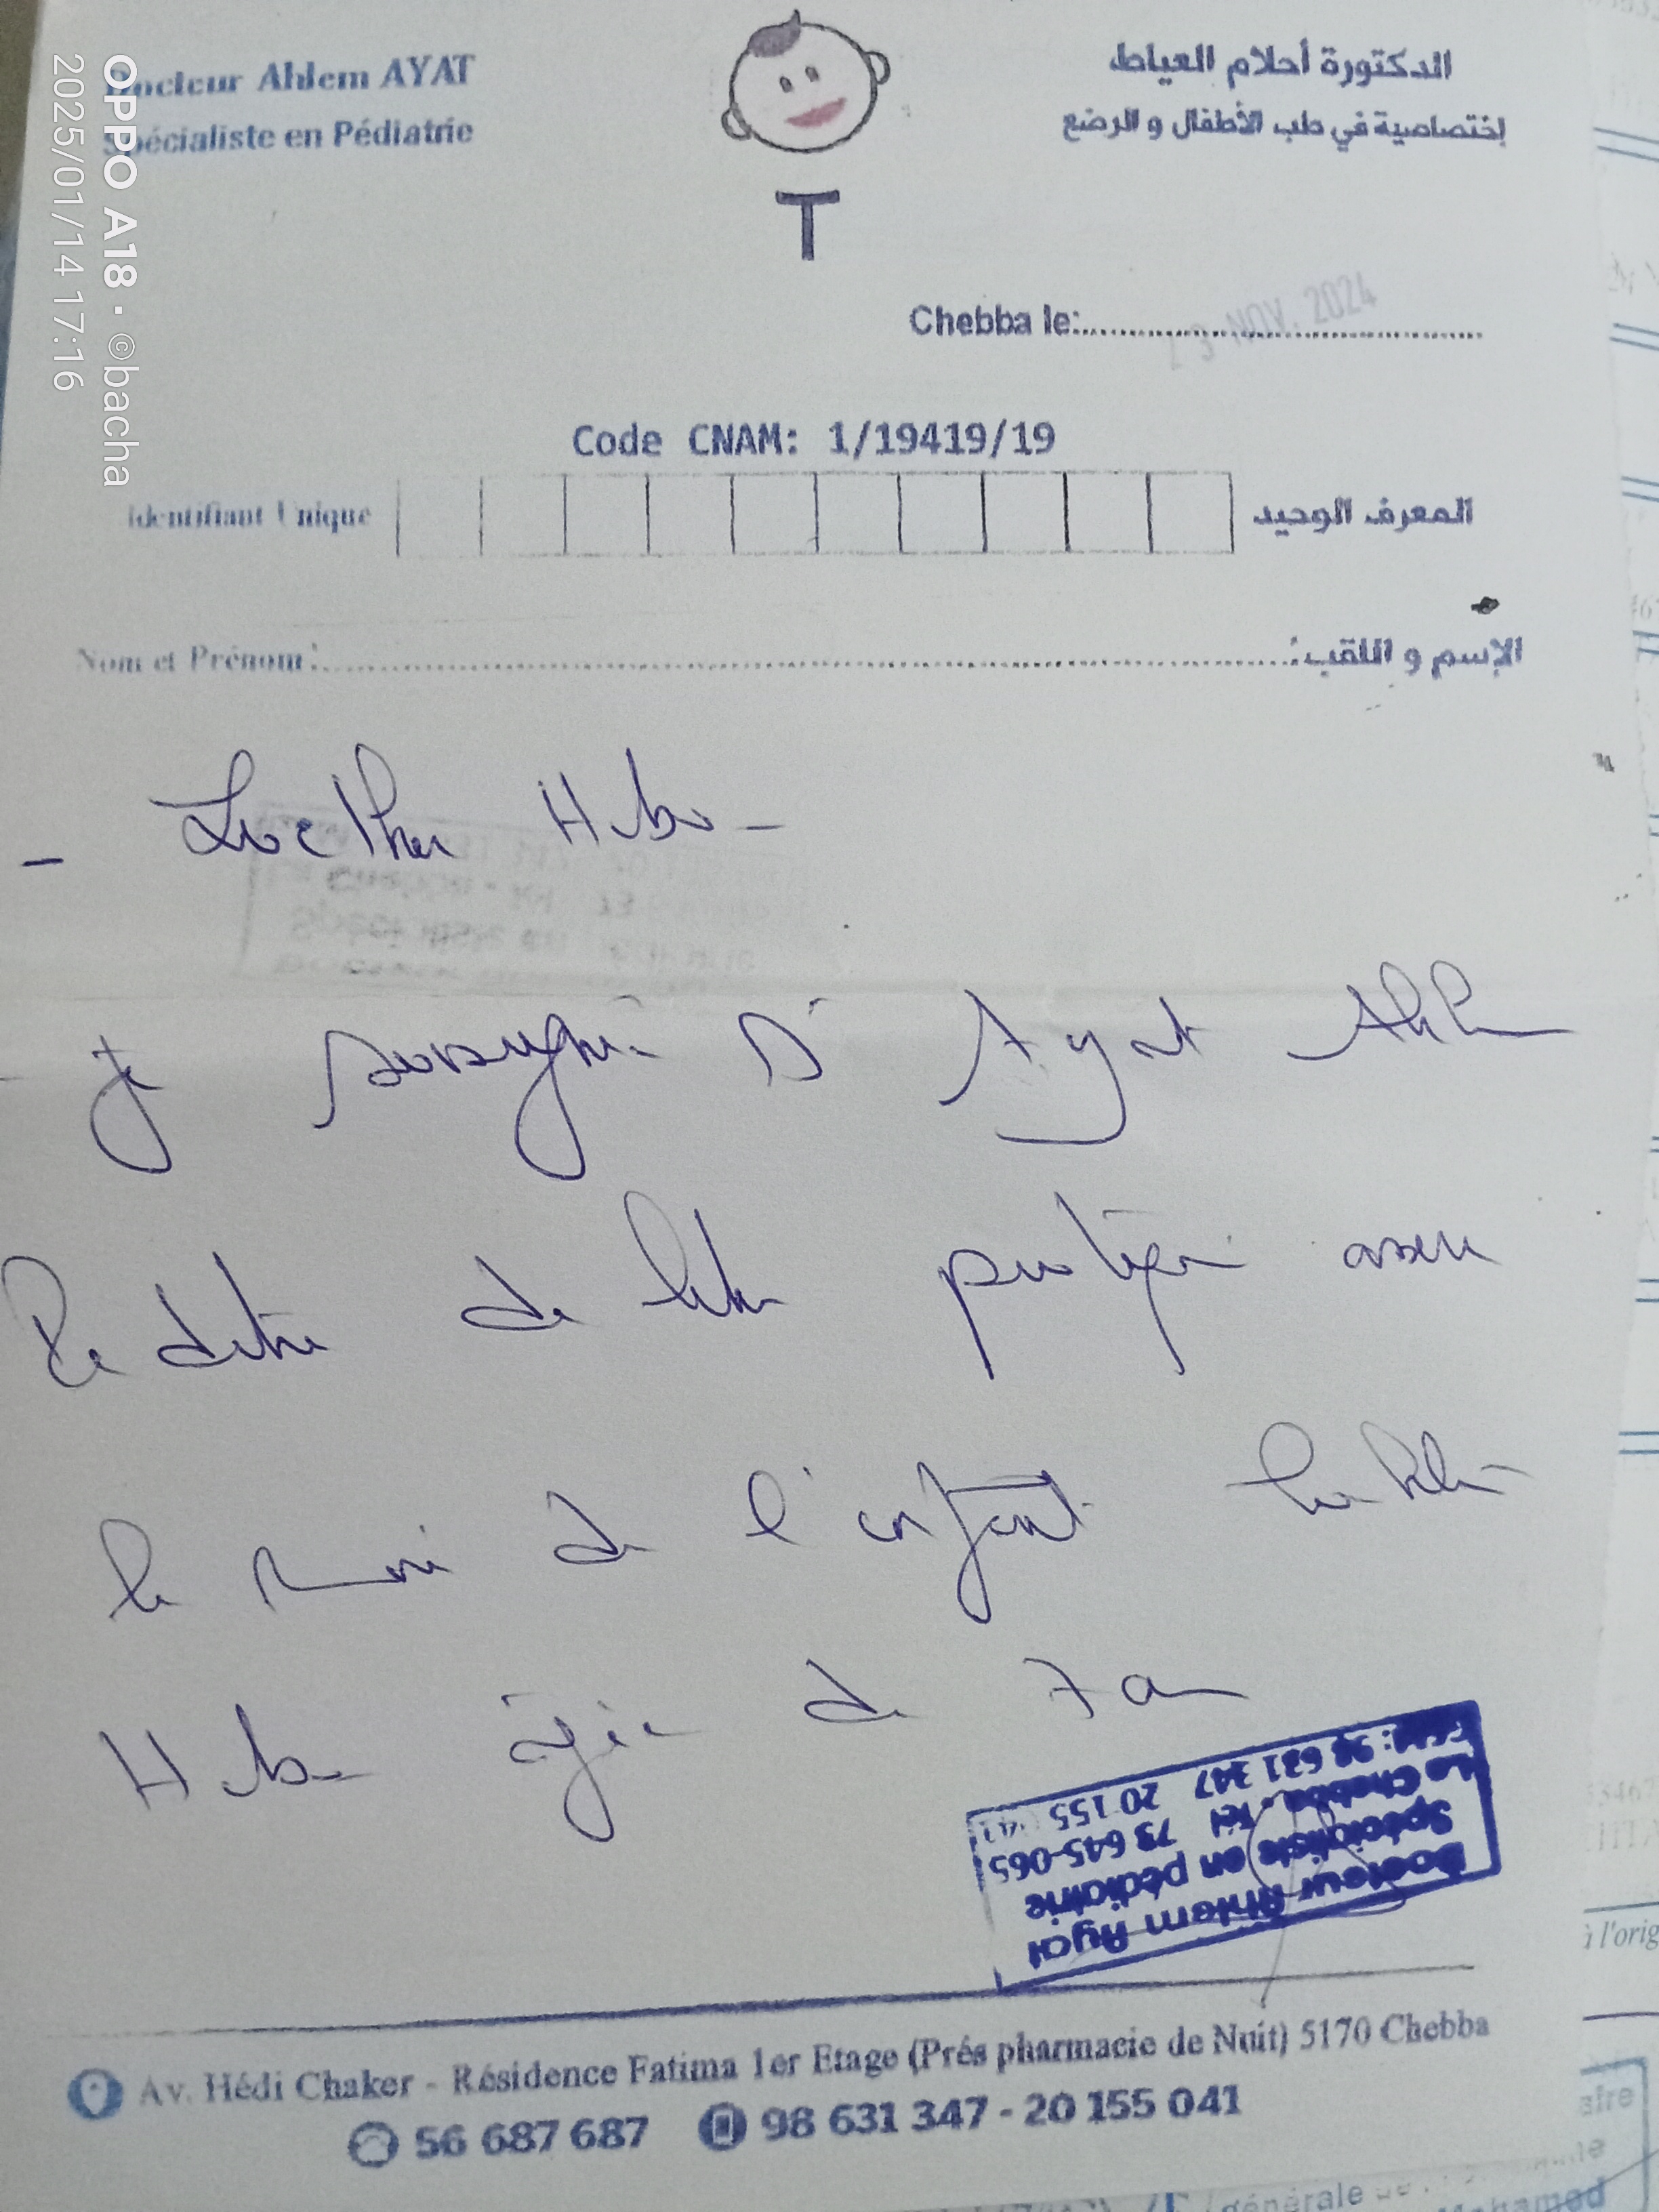 Docteur Ahlem AYAT
Spécialiste en Pédiatrie
الدكتورة أحلام العياط
إختصاصية في طب الأطفال و الرضع
T
Chebba le: 3 NOV. 2024
Code CNAM: 1/19419/19
Identifiant Unique المعرف الوحيد
Nom et Prénom: الإسم و اللقب:
je soussigné Dr Ayat Ahlem
Pédiatre de libre pratique assure
le suivi de l'enfant
âgée de 7 ans
Docteur Ahlem Ayat
Spécialiste en pédiatrie
La Chebba - Tél 73 645-065
98 631 347 20 155 041
Av. Hédi Chaker - Résidence Fatima 1er Etage (Prés pharmacie de Nuit) 5170 Chebba
56 687 687 98 631 347 - 20 155 041
à l'orig
générale de
OPPO A18 · ©bacha
2025/01/14 17:16